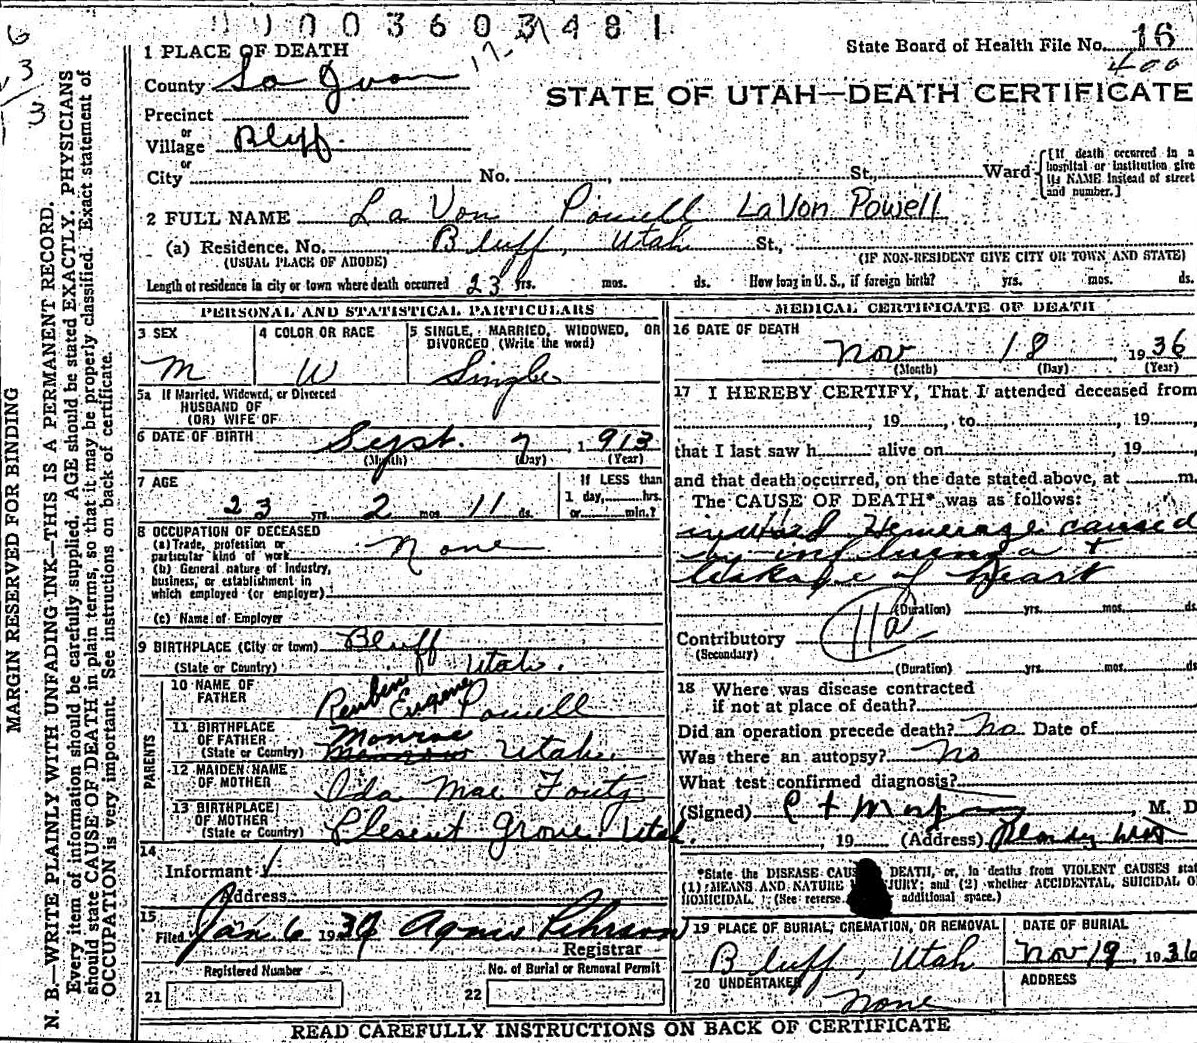 0003603481
State Board of Health File No. 16
400
STATE OF UTAH—DEATH CERTIFICATE
1 PLACE OF DEATH
County Sa Juan
Precinct
or
Village Bluff.
or
City No. St., Ward [If death occurred in a hospital or institution give its NAME instead of street and number.]
2 FULL NAME La Von Powell LaVon Powell
(a) Residence. No. Bluff, Utah St.,
(USUAL PLACE OF ABODE) (IF NON-RESIDENT GIVE CITY OR TOWN AND STATE)
Length of residence in city or town where death occurred 23 yrs. mos. ds. How long in U. S., if foreign birth? yrs. mos. ds.
PERSONAL AND STATISTICAL PARTICULARS
3 SEX
M
4 COLOR OR RACE
W
5 SINGLE, MARRIED, WIDOWED, OR DIVORCED (Write the word)
Single
5a If Married, Widowed, or Divorced
HUSBAND OF
(OR) WIFE OF
6 DATE OF BIRTH Sept. 7 1913
(Month) (Day) (Year)
7 AGE
23 yrs. 2 mos. 11 ds.
If LESS than
1 day, hrs.
or min.?
8 OCCUPATION OF DECEASED
(a) Trade, profession or
particular kind of work None
(b) General nature of industry,
business, or establishment in
which employed (or employer)
(c) Name of Employer
9 BIRTHPLACE (City or town) Bluff
(State or Country) Utah.
PARENTS
10 NAME OF
FATHER Reuben Eugene Powell
11 BIRTHPLACE
OF FATHER Monroe
(State or Country) Utah.
12 MAIDEN NAME
OF MOTHER Ida Mae Foutz
13 BIRTHPLACE
OF MOTHER
(State or Country) Plesent Grove Utah.
14
Informant
Address
15
Filed Jan. 6 1937 Agnes Pehrson
Registrar
Registered Number
21
No. of Burial or Removal Permit
22
MEDICAL CERTIFICATE OF DEATH
16 DATE OF DEATH
Nov 18, 1936
(Month) (Day) (Year)
17 I HEREBY CERTIFY, That I attended deceased from
, 19 , to , 19 ,
that I last saw h alive on , 19
and that death occurred, on the date stated above, at m.
The CAUSE OF DEATH* was as follows:
inward Hemerage caused
by influenza +
leakage of heart
(Duration) yrs. mos. ds
11a
Contributory
(Secondary)
(Duration) yrs. mos. ds
18 Where was disease contracted
if not at place of death?
Did an operation precede death? No Date of
Was there an autopsy? No
What test confirmed diagnosis?
(Signed) , M. D
, 19 (Address)
*State the DISEASE CAUS DEATH, or, in deaths from VIOLENT CAUSES stat
(1) MEANS AND NATURE JURY; and (2) whether ACCIDENTAL, SUICIDAL O
HOMICIDAL. (See reverse additional space.)
19 PLACE OF BURIAL, CREMATION, OR REMOVAL
Bluff, Utah
DATE OF BURIAL
Nov 19, 1936
20 UNDERTAKER
None
ADDRESS
READ CAREFULLY INSTRUCTIONS ON BACK OF CERTIFICATE
MARGIN RESERVED FOR BINDING
N. B.—WRITE PLAINLY WITH UNFADING INK—THIS IS A PERMANENT RECORD.
Every item of information should be carefully supplied. AGE should be stated EXACTLY. PHYSICIANS
should state CAUSE OF DEATH in plain terms, so that it may be properly classified. Exact statement of
OCCUPATION is very important. See instructions on back of certificate.